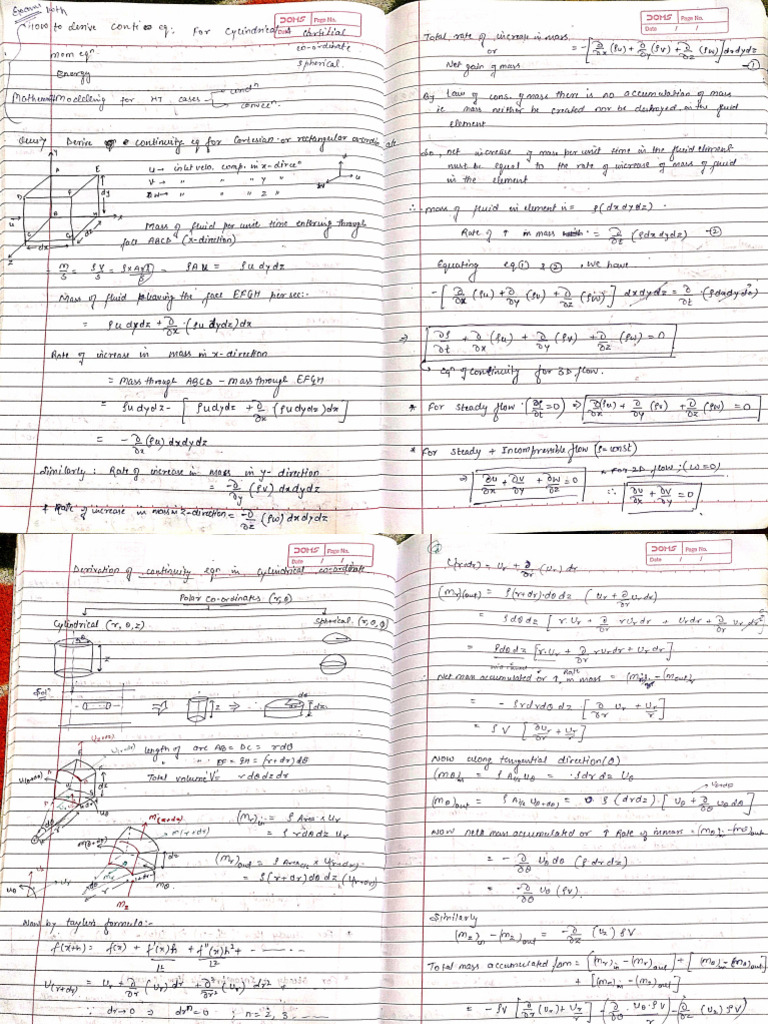 How to derive conti eq: For Cylindrical
co-ordinate
spherical.
mom eqⁿ
Energy
Mathematic Modelling for HT cases
condⁿ
convecⁿ.
Derive continuity eq for Cartesian or rectangular coordinate
u → inlet velo. comp. in x-direcⁿ
V → " " " y "
W → " " " z "
Mass of fluid per unit time entering through
face ABCD (x-direction)
= ρAu = ρu dydz
Mass of fluid leaving the face EFGH per sec:-
= ρu dydz + ∂/∂x (ρu dydz) dx
Rate of increase in mass in x-direction
= Mass through ABCD - Mass through EFGH
= ρu dydz - [ρu dydz + ∂/∂x (ρu dydz) dx]
= -∂/∂x (ρu) dxdydz
Similarly : Rate of increase in mass in y-direction
= -∂/∂y (ρV) dxdydz
& Rate of increase in mass in z-direction = -∂/∂z (ρw) dxdydz
DOMS Page No.
Date / /
Total rate of increase in mass
or
Net gain of mass
= -[∂/∂x (ρu) + ∂/∂y (ρV) + ∂/∂z (ρw)] dxdydz —①
By law of cons. of mass there is no accumulation of mass
i.e. mass neither be created nor be destroyed in the fluid
element
So, net increase of mass per unit time in the fluid element
must be equal to the rate of increase of mass of fluid
in the element
∴ mass of fluid in element is = ρ(dxdydz).
Rate of ↑ in mass = ∂/∂t (ρdxdydz) —②
Equating eq ① & ②, we have
-[∂/∂x (ρu) + ∂/∂y (ρv) + ∂/∂z (ρw)] dxdydz = ∂/∂t (ρdxdydz)
⇒ ∂ρ/∂t + ∂/∂x (ρu) + ∂/∂y (ρv) + ∂/∂z (ρw) = 0
Eqⁿ of continuity for 3D flow.
* For steady flow (∂ρ/∂t = 0) ⇒ ∂/∂x (ρu) + ∂/∂y (ρv) + ∂/∂z (ρw) = 0
* For steady + Incompressible flow (ρ = const)
⇒ ∂u/∂x + ∂v/∂y + ∂w/∂z = 0
* For 2D flow; (w=0)
∴ ∂u/∂x + ∂v/∂y = 0
DOMS Page No.
Date / /
Derivation of continuity eqn in cylindrical co-ordinate
DOMS Page No.
Date / /
Polar co-ordinates (r,θ)
Cylindrical (r, θ, z)
Spherical (r, θ, φ)
Solⁿ
length of arc AB = DC = rdθ
" " = (r+dr)dθ
Total volume 'V' = rdθdzdr
(mr)in = ρ Area × Ur
= ρ rdθ dz Ur
(mr)out = ρ Area × U(r+dr)
= ρ(r+dr)dθ dz (U(r+dr))
Now by taylors formula:-
f(x+h) = f(x) + f'(x)h + f''(x)h² + ------
U(r+dr) = Ur + ∂/∂r (Ur) dr + ∂²/∂r² (Ur) dr² +
∵ dr→0 ⇒ drⁿ = 0 ; n = 2, 3 ----
DOMS Page No.
Date / /
U(r+dr) = Ur + ∂/∂r (Ur) dr
(mr)(out) = ρ(r+dr)·dθ dz (Ur + ∂/∂r Ur dr)
= ρdθdz [r·Ur + ∂/∂r rUr dr + Ur dr + ∂/∂r Ur dr²]
= ρdθdz [r·Ur + ∂/∂r rUr dr + Ur dr]
∴ Net mass accumulated or ↑ Rate in mass = (mr)in - (mr)out
= - ρrdrdθ dz [∂/∂r Ur + Ur/r]
= ρV [∂Ur/∂r + Ur/r]
Now along tangential direction (θ)
(mθ)in = ρ A Uθ = ρdr dz Uθ
(mθ)out = ρ A U(θ+dθ) = ρ (drdz) · [Uθ + ∂/∂θ Uθ dθ]
Now net mass accumulated or ↑ Rate of increase = (mθ)in - (mθ)out
= - ∂/∂θ Uθ dθ (ρ drdz)
= -∂/∂θ Uθ (ρV)
Similarly
(mz)in - (mz)out = -∂/∂z (Uz) ρV
Total mass accumulated from = [(mr)in - (mr)out] + [(mθ)in - (mθ)out]
+ [(mz)in - (mz)out]
= -ρV [∂/∂r (Ur) + Ur/r] - (∂/∂θ Uθ ρV) - ∂/∂z (Uz) ρV